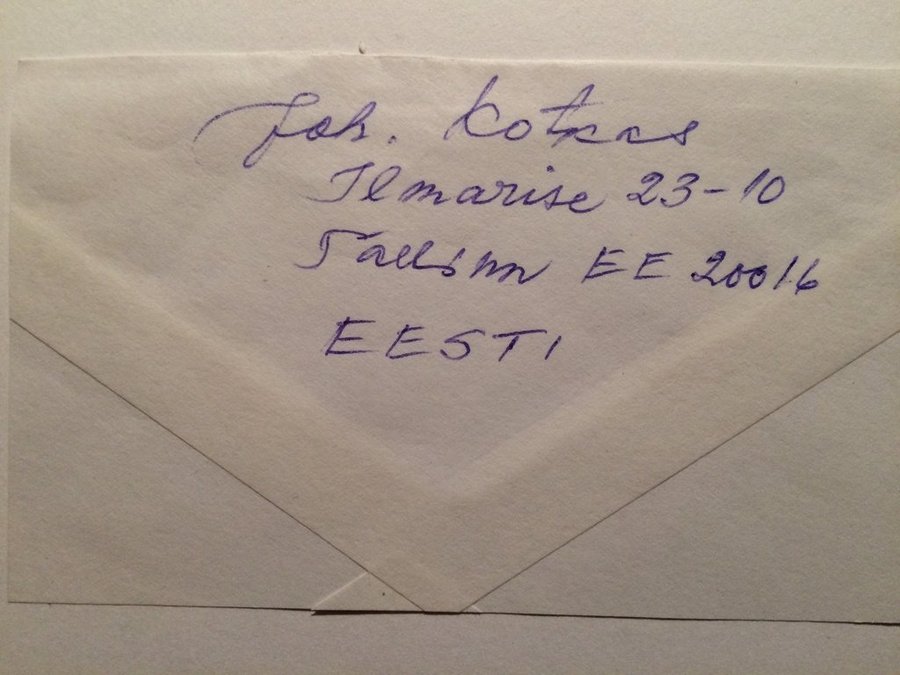 Joh. Kotkas
Ilmarise 23-10
Tallinn EE 20016
EESTI